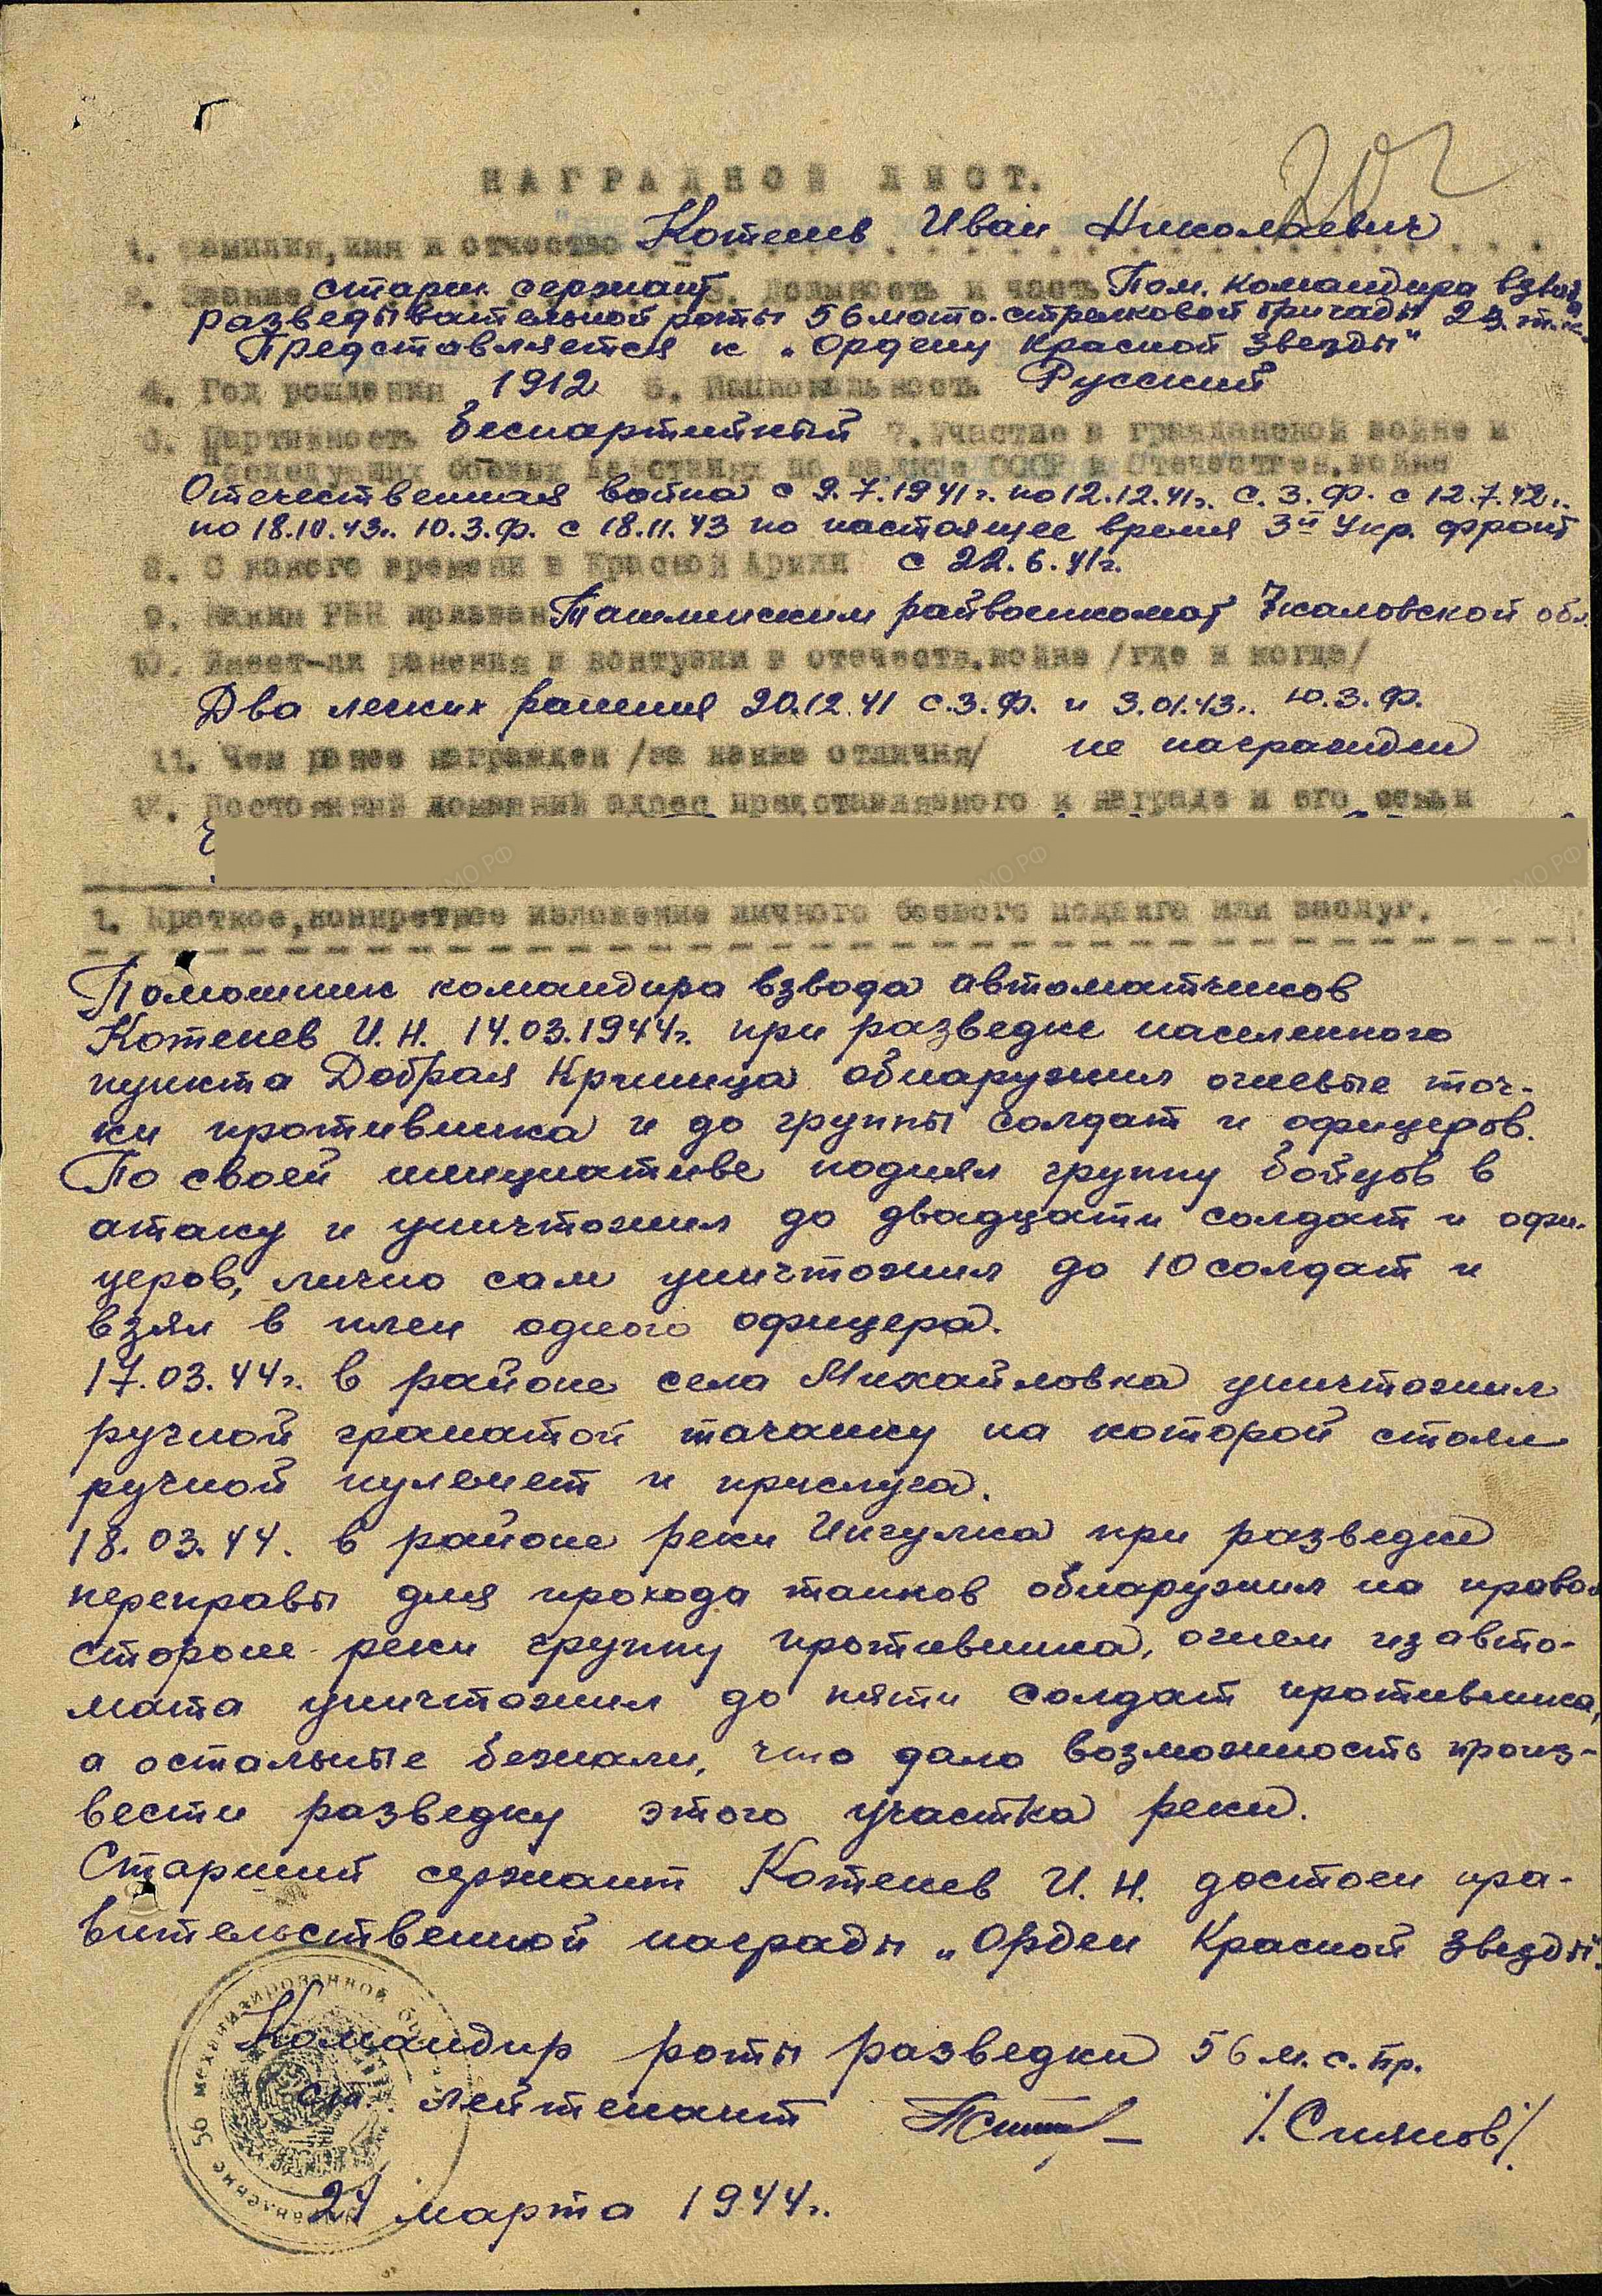 НАГРАДНОЙ ЛИСТ.
1. Фамилия, имя и отчество Котенев Иван Николаевич
2. Звание старш. сержант 3. Должность и часть Пом. командира взвода
разведывательной роты 56 мото-стрелковой бригады 23 т.к.
Представляется к „Ордену Красной Звезды"
4. Год рождения 1912 5. Национальность Русский
6. Партийность беспартийный 7. Участие в гражданской войне и
последующих боевых действиях по защите СССР и Отечествен. войне
Отечественная война с 9.7.1941г. по 12.12.41г. С.З.Ф. с 12.7.42г.
по 18.10.43г. Ю.З.Ф. с 18.11.43 по настоящее время 3й Укр. фронт
8. С какого времени в Красной Армии с 22.6.41г.
9. Каким РВК призван Ташлинским райвоенкомат Чкаловской обл.
10. Имеет-ли ранения и контузии в отечеств. войне /где и когда/
Два легких ранения 20.12.41 С.З.Ф. и 3.01.43г. Ю.З.Ф.
11. Чем ранее награжден /за какие отличия/ не награжден
12. Постоянный домашний адрес представляемого к награде и его семьи
1. Краткое, конкретное изложение личного боевого подвига или заслуг.
Помошник командира взвода автоматчиков
Котенев И.Н. 14.03.1944г. при разведке населенного
пункта Добрая Криница обнаружил огневые точ-
ки противника и до группы солдат и офицеров.
По своей инициативе поднял группу бойцов в
атаку и уничтожил до двадцати солдат и офи-
церов, лично сам уничтожил до 10 солдат и
взял в плен одного офицера.
17.03.44г. в районе села Михайловка уничтожил
ручной гранатой тачанку на которой стоял
ручной пулемет и прислуга.
18.03.44. в районе реки Ингулка при разведке
переправы для прохода танков обнаружил на правой
стороне реки группу противника, огнем из авто-
мата уничтожил до пяти солдат противника,
а остальные бежали, что дало возможность произ-
вести разведку этого участка реки.
Старший сержант Котенев И.Н. достоен пра-
вительственной награды „Орден Красной Звезды".
Командир роты разведки 56 м.с.бр.
ст. лейтенант /Смянов/
24 марта 1944г.
56 механизированной